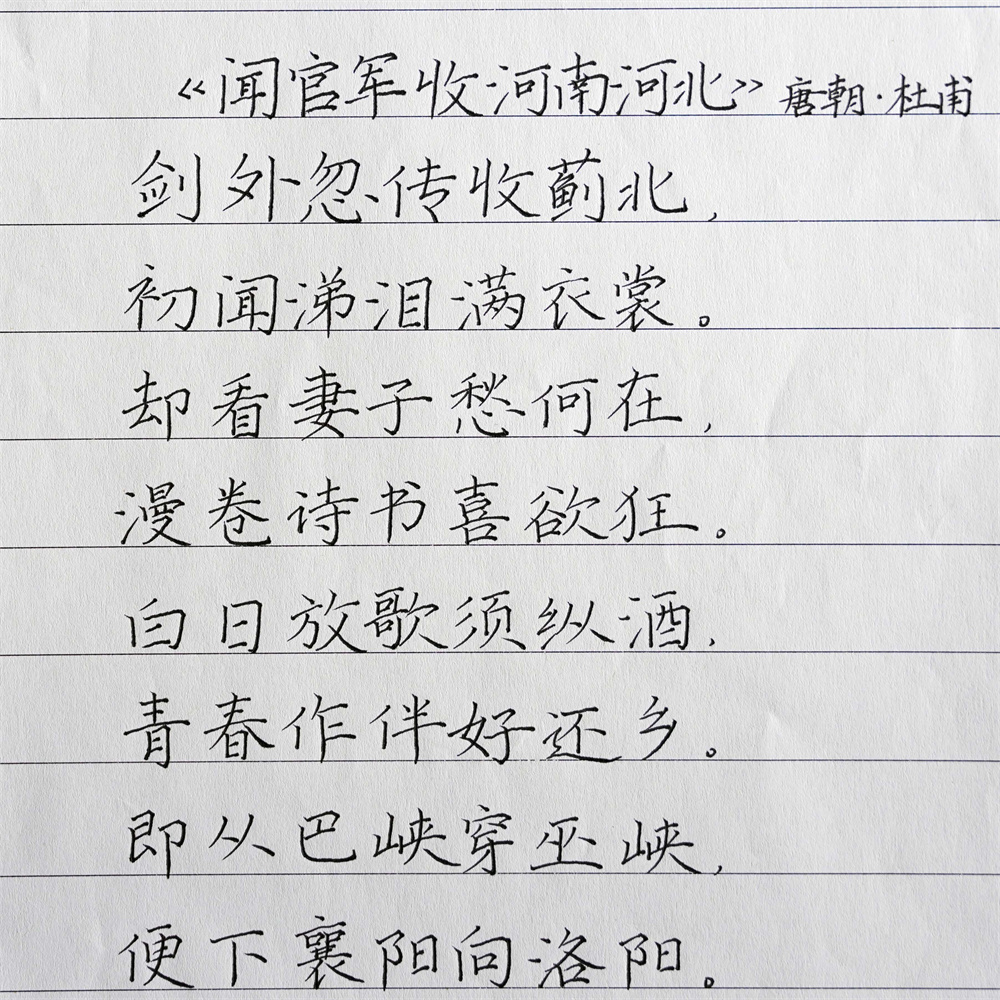 《闻官军收河南河北》唐朝·杜甫
剑外忽传收蓟北,
初闻涕泪满衣裳。
却看妻子愁何在,
漫卷诗书喜欲狂。
白日放歌须纵酒,
青春作伴好还乡。
即从巴峡穿巫峡,
便下襄阳向洛阳。